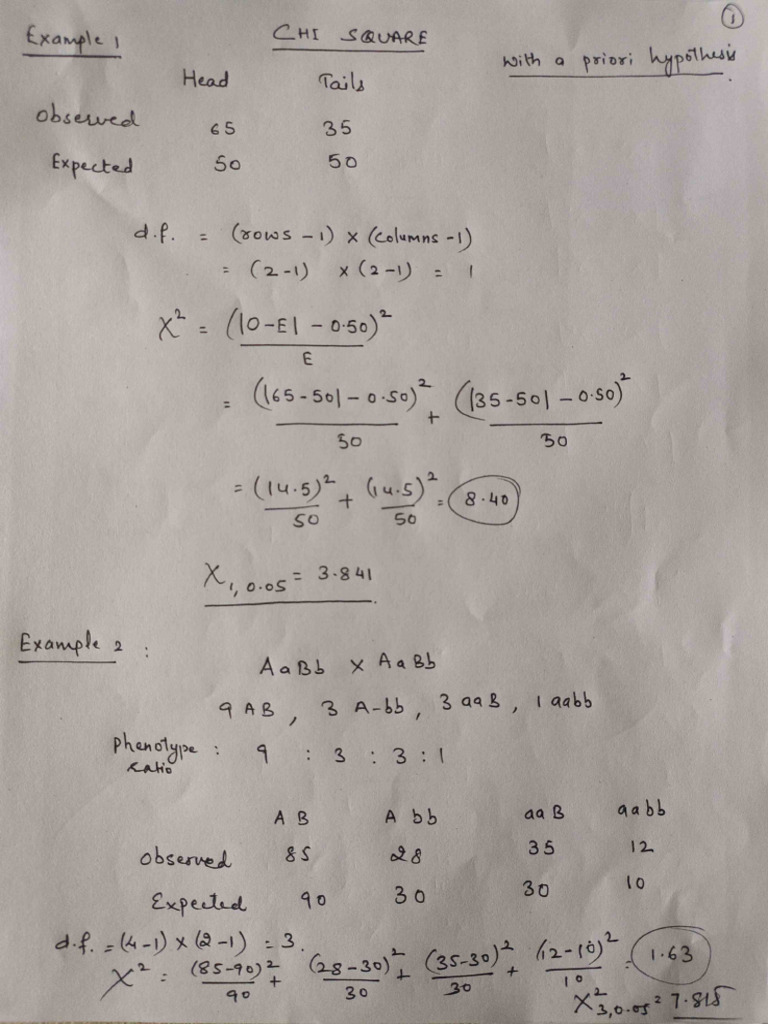 ①
Example 1 CHI SQUARE
with a priori hypothesis
Head Tails
Observed 65 35
Expected 50 50
d.f. = (rows - 1) x (columns - 1)
= (2-1) x (2-1) = 1
χ² = (|O-E| - 0.50)² / E
= (|65-50| - 0.50)² / 50 + (|35-50| - 0.50)² / 50
= (14.5)² / 50 + (14.5)² / 50 = 8.40
χ 1, 0.05 = 3.841
Example 2 :
AaBb x AaBb
9 AB , 3 A-bb , 3 aaB , 1 aabb
Phenotype ratio : 9 : 3 : 3 : 1
AB Abb aaB aabb
Observed 85 28 35 12
Expected 90 30 30 10
d.f. = (4-1) x (2-1) = 3.
χ² = (85-90)² / 90 + (28-30)² / 30 + (35-30)² / 30 + (12-10)² / 10 = 1.63
χ² 3, 0.05 = 7.815